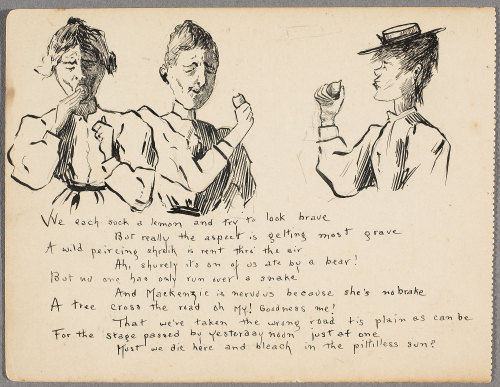 We each suck a lemon and try to look brave
But really the aspect is getting most grave
A wild peircing shreik is rent thro' the air
Ah, shurely it's on of us ate by a bear!
But no one has only run over a snake
And Mackenzie is nervous because she's no brake
A tree cross the road oh My! Goodness me!
That we've taken the wrong road tis plain as can be
For the stage passed by yesterday noon just at one
Must we die here and bleach in the pittiless sun?